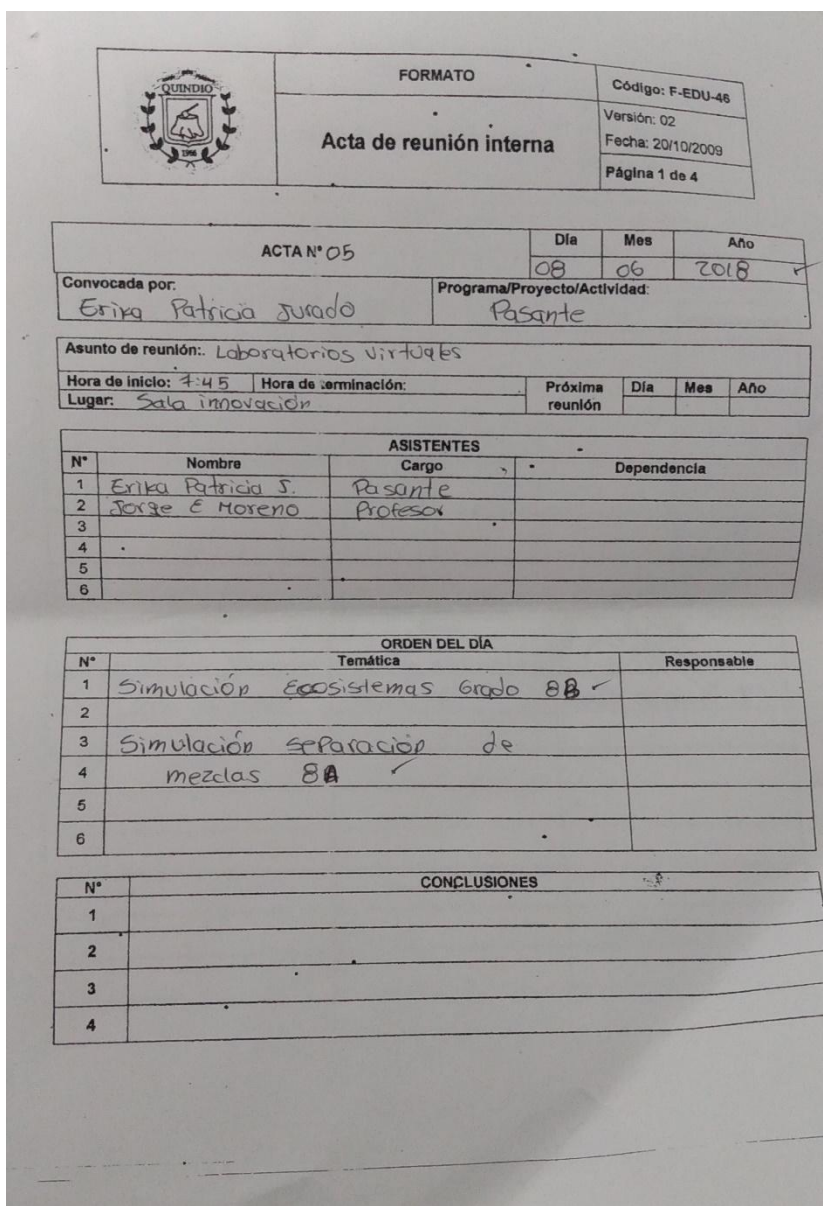 QUINDIO
1966
FORMATO
Acta de reunión interna
Código: F-EDU-46
Versión: 02
Fecha: 20/10/2009
Página 1 de 4
ACTA N° 05
Día Mes Año
08 06 2018
Convocada por:
Erika Patricia Jurado
Programa/Proyecto/Actividad:
Pasante
Asunto de reunión:. Laboratorios virtuales
Hora de inicio: 7:45 Hora de terminación:
Lugar: Sala innovación
Próxima reunión Día Mes Año
ASISTENTES
N° Nombre Cargo Dependencia
1 Erika Patricia J. Pasante
2 Jorge E Moreno Profesor
3
4
5
6
ORDEN DEL DÍA
N° Temática Responsable
1 Simulación Ecosistemas Grado 8B ✓
2
3 Simulación separación de
4 mezclas 8A ✓
5
6
N° CONCLUSIONES
1
2
3
4